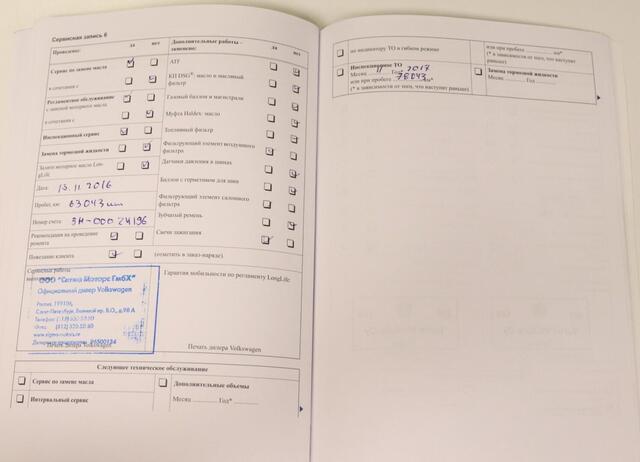 Сервисная запись 6
Проведено:
да нет
Сервис по замене масла
в сочетании с
Регламентное обслуживание
с заменой моторного масла
в сочетании с
Инспекционный сервис
Замена тормозной жидкости
Залито моторное масло Lon-
gLife
Дата: 15.11.2016
Пробег, км: 63043 км
Номер счета: ЗН-000 24196
Рекомендация на проведение
ремонта
Пожелание клиента (отметить в заказ-наряде)
Дополнительные работы –
заменено:
да нет
ATF
КП DSG®: масло и масляный
фильтр
Газовый баллон и магистрали
Муфта Haldex: масло
Топливный фильтр
Фильтрующий элемент воздушного
фильтра
Датчики давления в шинах
Баллон с герметиком для шин
Фильтрующий элемент салонного
фильтра
Зубчатый ремень
Свечи зажигания
Сервисные работы
ООО "Сигма Моторс ГмбХ"
Официальный дилер Volkswagen
Россия, 199106,
Телефон:
www.sigma-motors.ru
Печать дилера Volkswagen
Гарантия мобильности по регламенту LongLife
Печать дилера Volkswagen
Следующее техническое обслуживание
Сервис по замене масла
Интервальный сервис
Дополнительные объемы
Месяц ............ Год* ............
по индикатору ТО в гибком режиме
или при пробеге ............ км*
(* в зависимости от того, что наступит
раньше)
Инспекционное ТО
Месяц 11 Год 2017
или при пробеге 78043 км*
(* в зависимости от того, что наступит раньше)
Замена тормозной жидкости
Месяц ............ Год ............